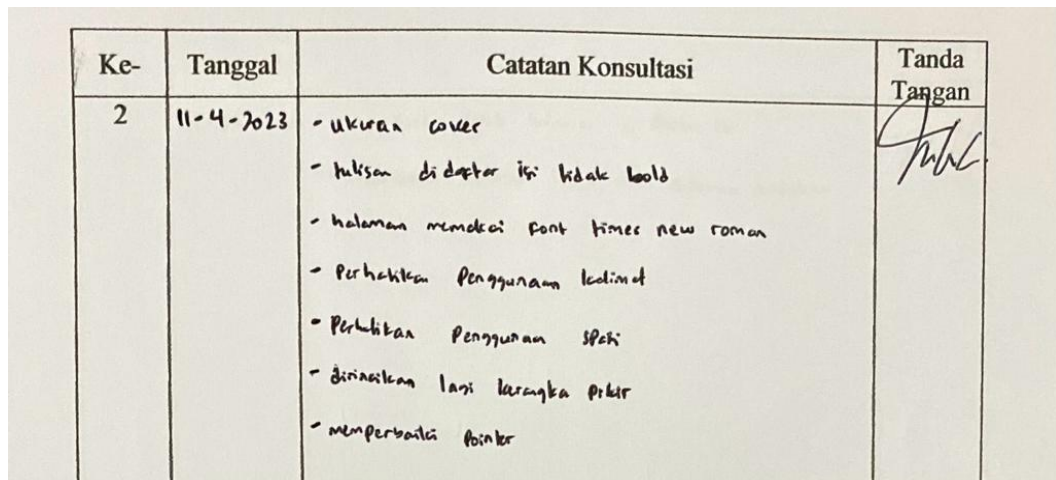 Ke- Tanggal Catatan Konsultasi Tanda
Tangan
2 11-4-2023 - ukuran cover
- tulisan di daftar isi tidak bold
- halaman memakai font times new roman
- Perhatikan Penggunaan kalimat
- Perhatikan Penggunaan spasi
- dirincikan lagi kerangka pikir
- memperbaiki Pointer